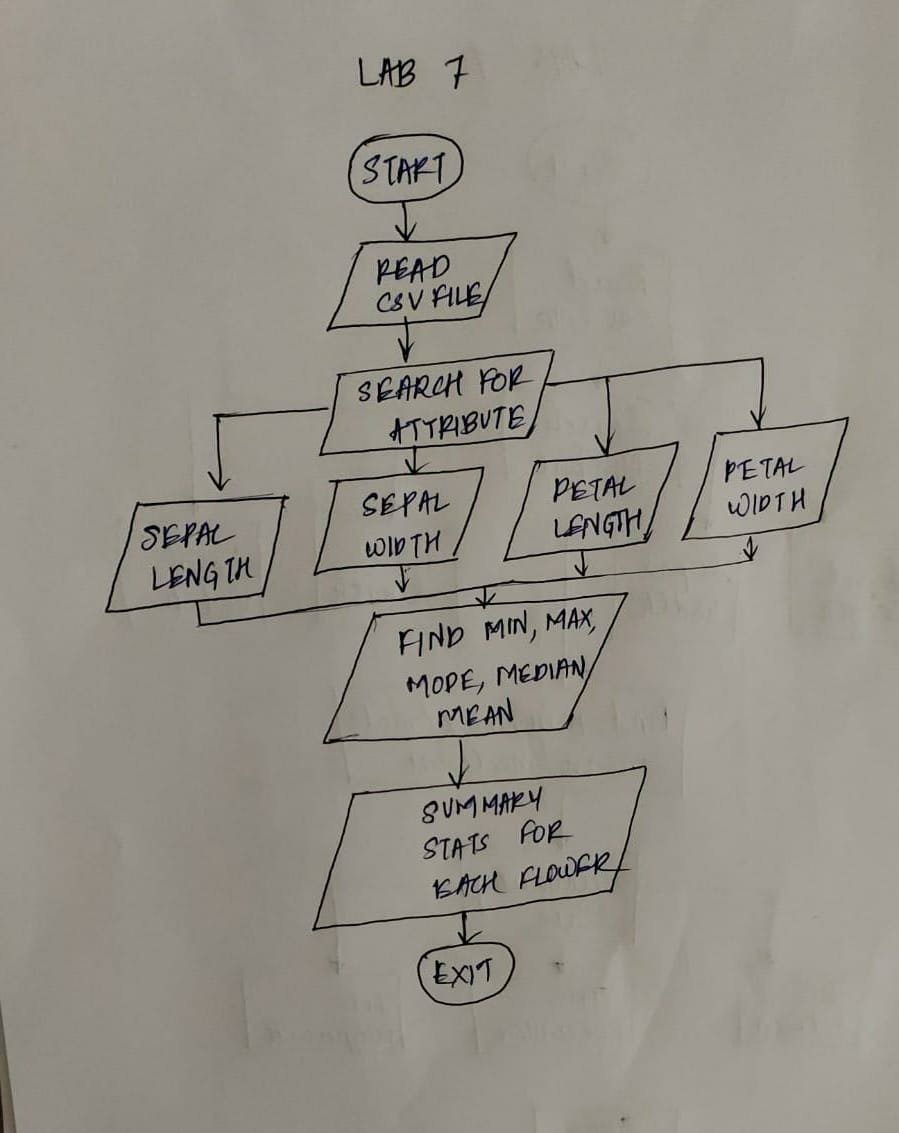 LAB 7
START
READ
CSV FILE
SEARCH FOR
ATTRIBUTE
SEPAL
LENGTH
SEPAL
WIDTH
PETAL
LENGTH
PETAL
WIDTH
FIND MIN, MAX,
MODE, MEDIAN
MEAN
SUMMARY
STATS FOR
EACH FLOWER
EXIT